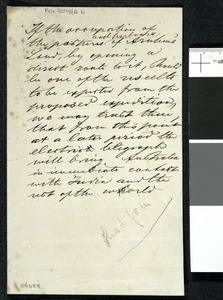 If the occupation of
and
the pastures of Arnhem's
Land, by opening a
direct route to it, should
be one of the results
to be expected from the
proposed expedition,
we may trust then
that from this point
at a later period the
electric telegraph
will bring Australia
in immediate contact
with India and the
rest of the world